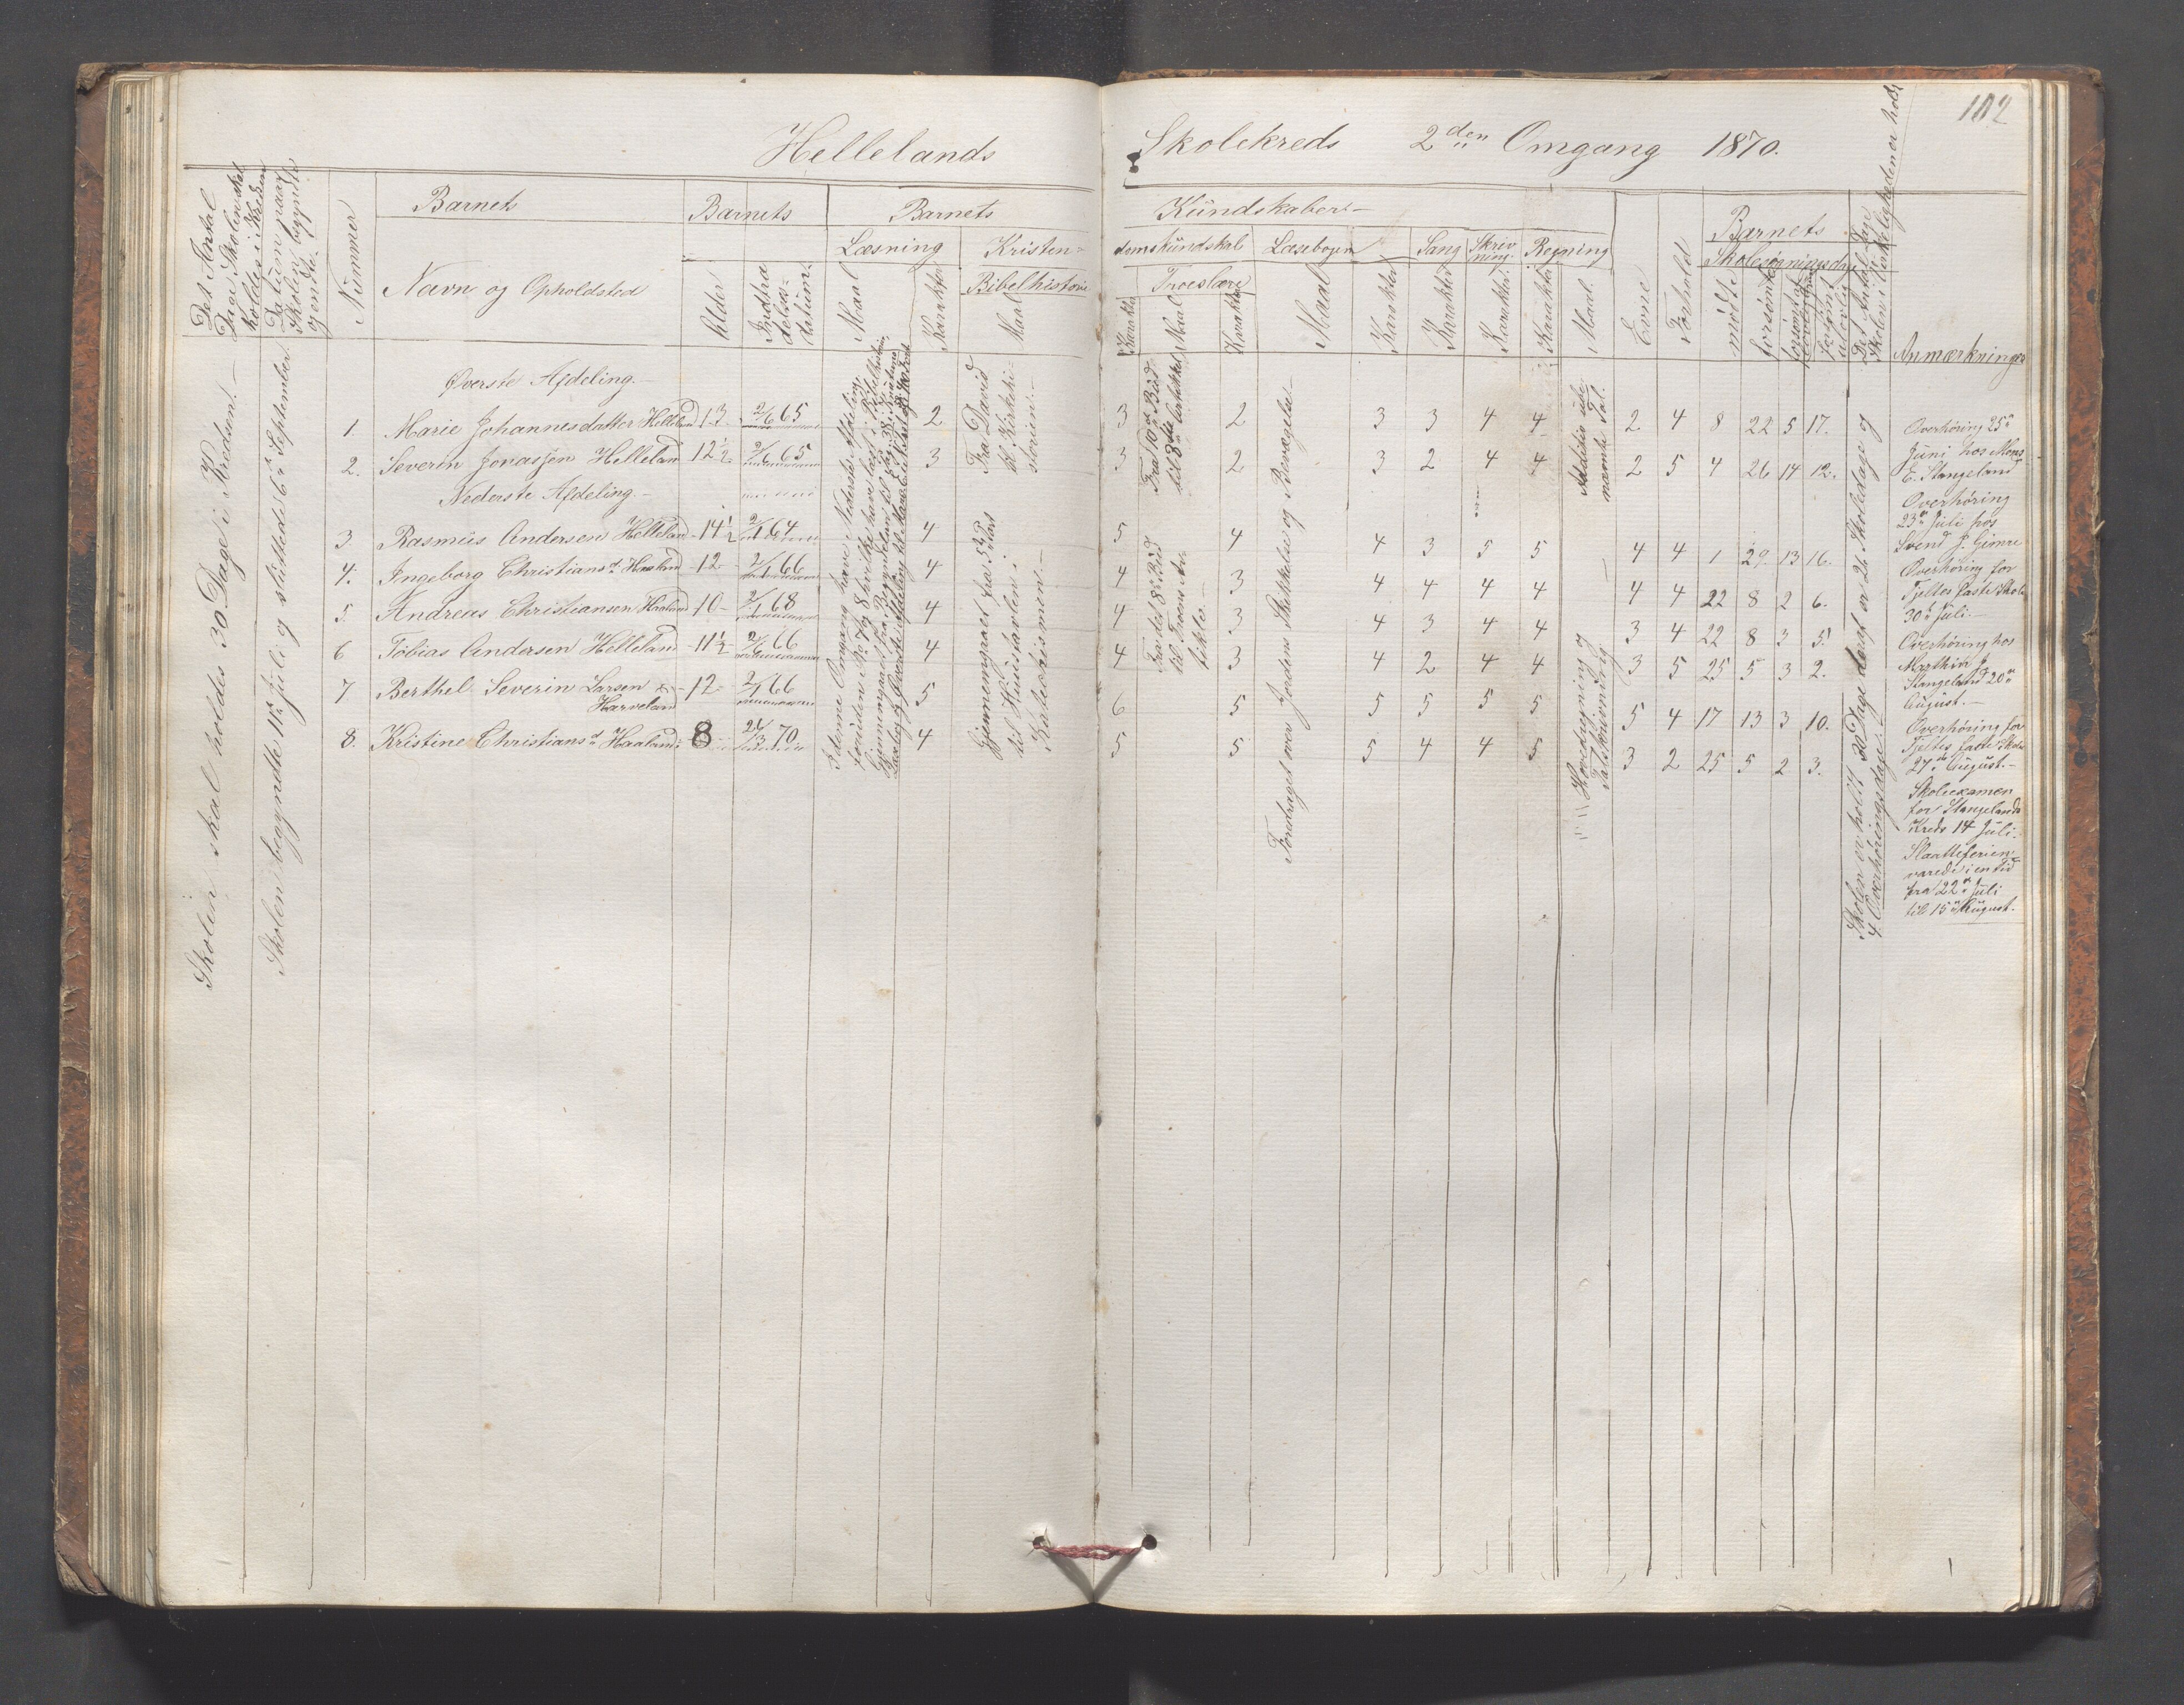 102
Hellelands Skolekreds 2den Omgang 1870.
Det Antal Dage Skolen skal holdes i Kredsen
Datum naar Skolen begyndte og endte.
Nummer
Barnets
Navn og Opholdsted
Barnets
Alder
Indtrædelsesdatum.
Barnets Kundskaber.
Læsning
Maal
Karakter
Kristendomskundskab
Bibelhistorie
Maal
Karakter
Troeslære
Maal
Karakter
Læsebogen
Maal
Karakter
Sang
Karakter
Skrivning.
Karakter.
Regning
Karakter
Maal.
Evne
Forhold
Barnets
Skolesøgningsdage
mødte
forsømte
forsømt af
forsømt ulovlig
Det Antal Dage Skolen i Virkeligheden er holdt
Anmærkninger
Skolen skal holdes 30 Dage i Kredsen.
Skolen begyndte 11te Juli og sluttede 6te September.
Øverste Afdeling.
1. Marie Johannesdatter Helleland 13 2/6 65 2 3 2 3 3 4 4 2 4 8 22 5 17.
2. Severin Jonassen Helleland 12 1/2 2/6 65 3 3 2 3 2 4 4 2 5 4 26 14 12.
Nederste Afdeling
3 Rasmus Andersen Helleland 14 1/2 2/1 64 4 5 4 4 3 5 5 4 4 1 29 13 16.
4. Ingeborg Christiansd. Haaland 12 2/1 66 4 4 3 4 4 4 4 4 4 22 8 2 6.
5. Andreas Christiansen Haaland 10 2/1 68 4 4 3 4 3 4 4 3 4 22 8 3 5.
6 Tobias Andersen Helleland 11 1/2 2/6 66 4 4 3 4 2 4 4 3 5 25 5 3 2.
7 Berthel Severin Larsen Harveland 12 2/1 66 5 6 5 5 5 5 5 5 4 17 13 3 10.
8. Kristine Christiansd. Haaland 8 21/3 70 4 5 5 5 4 4 5 3 2 25 5 2 3.
Fra David til Kirkehistorien.
Gjennemgaaet fra 5te Part til Huustavlen i Katekismen
Fra 10de Bud til 3die Artikkel
Fra det 8de Bud til Troens Artikler.
Foredraget vore Jordens Skikkelse og Bevægelse.
Addition ubenævnte Tal.
Hovedregning og Talskrivning
Skolen er holdt 30 Dage deraf er 26 Skoledage og 4 Overhøringsdage.
Overhøring 25de
Juni hos Mons
E. Stangeland
Overhøring
23de Juli hos
Svend J. Gimre
Overhøring for
Tjeltes faste Skole
30te Juli.
Overhøring hos
Marthin J.
Stangeland 20de
August.
Overhøring for
Tjeltes faste Skole
27de August.
Skoleexamen
for Stangelands
Kreds 14 Juli.
Slaatteferien
varede i en tid
fra 22de Juli
til 15de August.